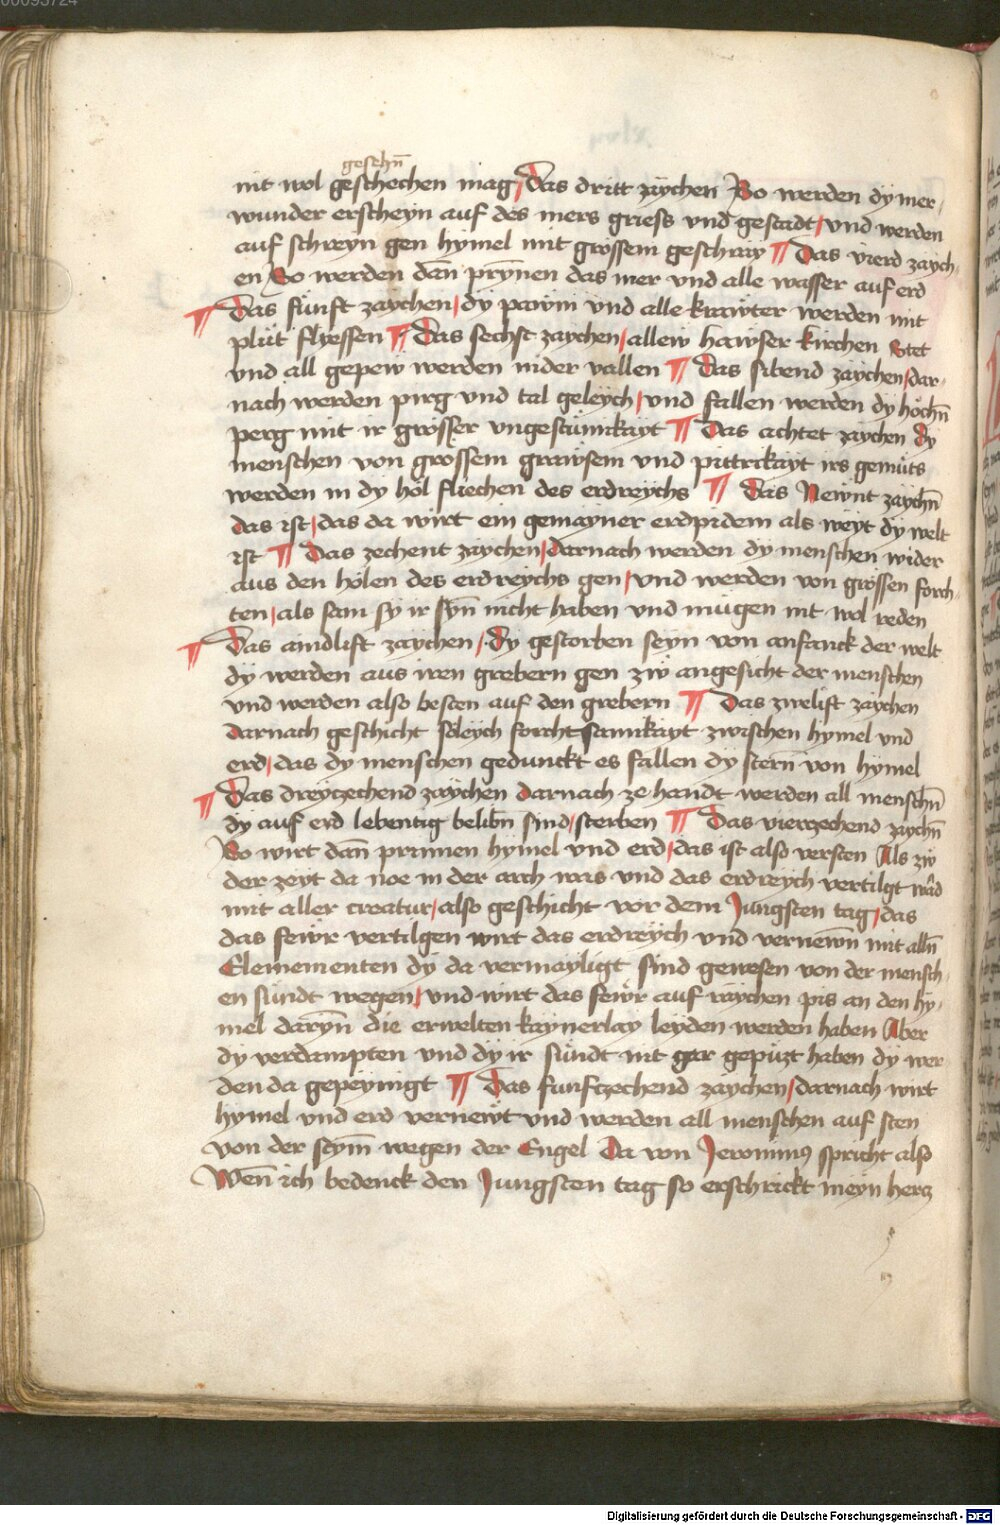 00095724
gesehn̄
nit wol geschechen mag / Das dritt zaychen So werden dy mer-
wunder erscheyn auf des mers griess vnd gestadt / vnd werden
auf schreyn gen hymel mit grossem geschray ¶ Das vierd zaych-
en / So werden dan̄ prynnen das mer vnd alle wasser auf erd
¶ Das funft zaychen / dy pawm vnd alle krawter werden mit
plüt flyessen ¶ Das sechst zaychen / allew hawser kirchen Stet
vnd all gepew werden nider vallen ¶ Das sibend zaychen / dar-
nach werden pirg vnd tal geleych / vnd fallen werden dy höchn̄
perg mit ir grösser vngestümikayt ¶ Das achtet zaychen dy
menschen von grossem grawsem vnd pittrikayt irs gemüts
werden in dy höl fliechen des erdreychs ¶ Das Newnt zaychn̄
das ist / das da wirt ein gemayner erdpidem als weyt dy welt
ist ¶ Das zechent zaychen / Darnach werden dy menschen wider
aus den hölen des erdreychs gen / vnd werden von grössen forch-
ten / als sam sy ir syn̄ nicht haben vnd mügen nit wol reden
¶ Das aindlift zaychen / Dy gestorben seyn von anfanck der welt
dy werden aus iren grebern gen zw angesicht der menschen
vnd werden also besten auf den grebern ¶ Das zwelift zaychen
Darnach geschicht söleych forchtsamikayt zwischen hymel vnd
erd / das dy menschen gedunckt es fallen dy stern̄ von hymel
¶ Das dreyzechend zaychen Darnach ze handt werden all menschn̄
dy auf erd lebentig belibn̄ sind / sterben ¶ Das vierzechend zaychn̄
So wirt dan̄ prinnen hymel vnd erd / das ist also versten Als zw
der zeyt da noe in der arch was vnd das erdreych vertilgt ward
mit aller creatur / also geschicht vor dem Jungsten tag / das
das fewr vertilgen wirt das erdreych vnd vernewn̄ mit alln̄
Elemementen dy da vermayligt sind gewesen von der mensch-
en sündt wegen / vnd wirt das fewr auf raychen pis an den hy-
mel daryn̄ die erwelten kaynerlay leyden werden haben Aber
dy verdampten vnd dy ir sündt nit gar gepüzt haben dy wer
den da gepeynigt ¶ Das funfzechend zaychen / darnach wirt
hymel vnd erd vernewt vnd werden all menschen auf sten
von der stym̄ wegen der Engel Da von Jeronimus spricht also
Wen̄ ich bedenck den Jungsten tag so erschrickt meyn herz
Digitalisierung gefördert durch die Deutsche Forschungsgemeinschaft - DFG